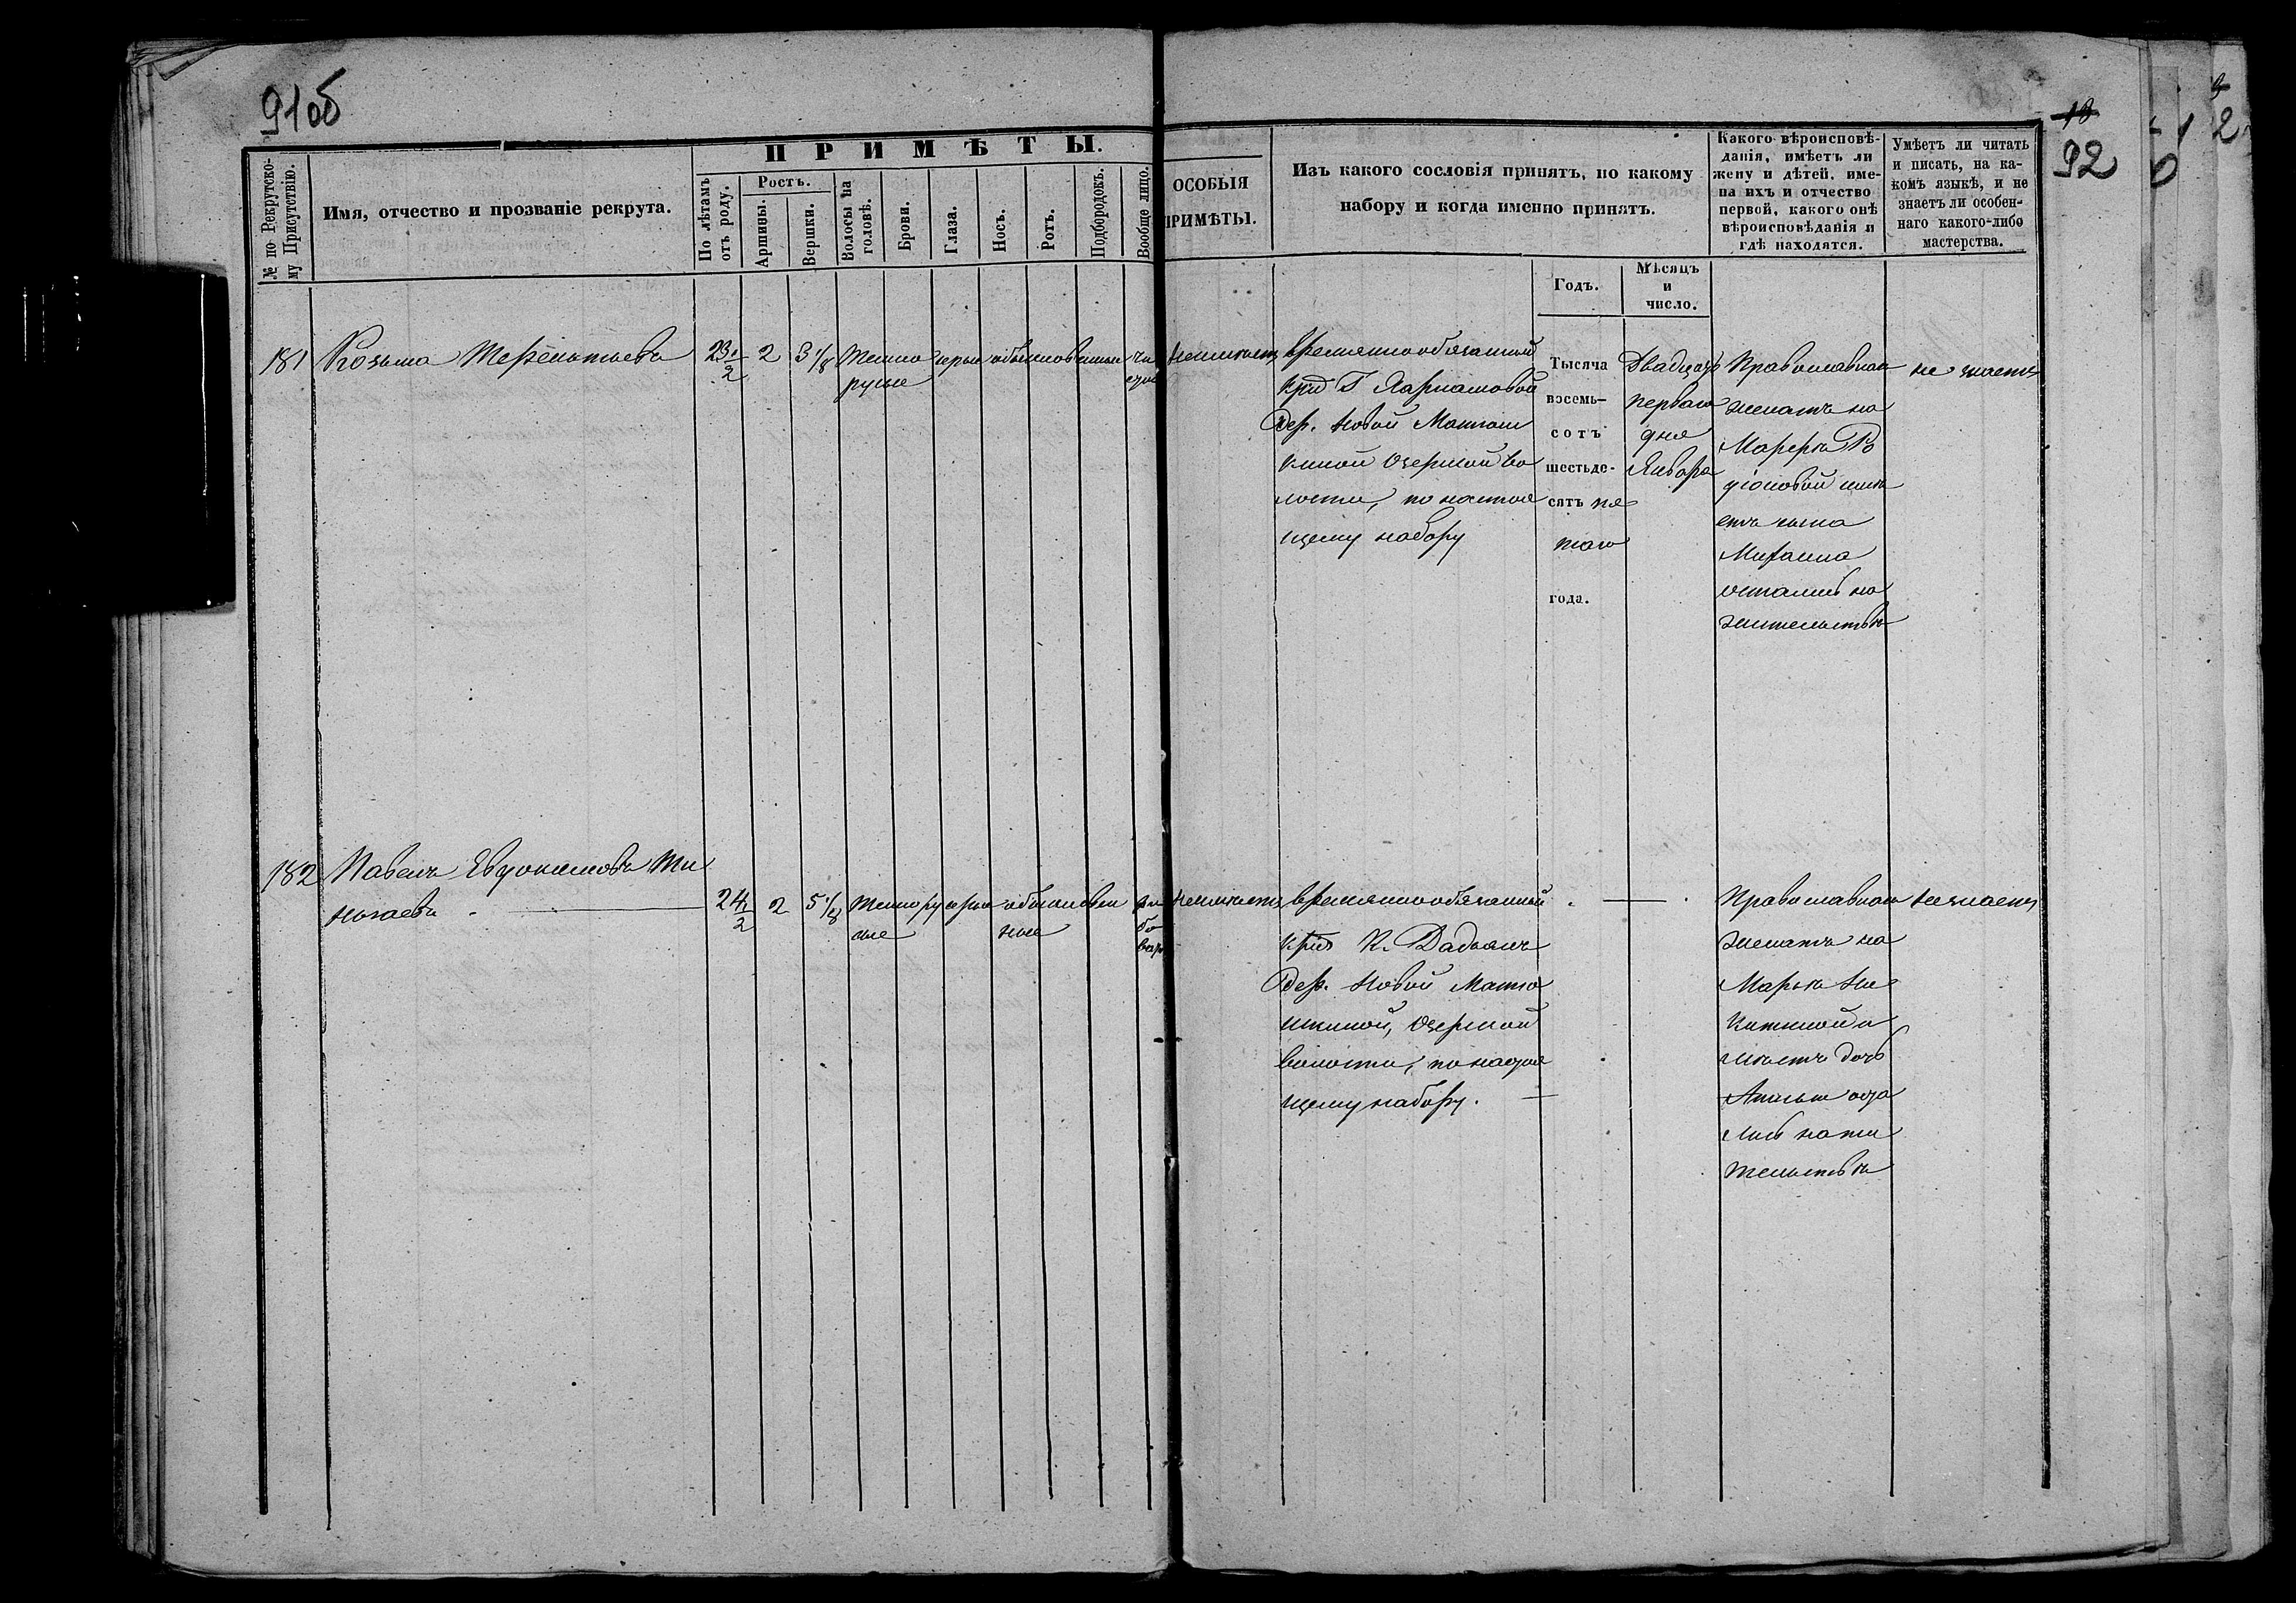 91об
18
92
ПРИМѢТЫ.
№ по Рекрутско-
му Присутствію.
Имя, отчество и прозваніе рекрута.
По лѣтамъ
отъ роду.
Ростъ.
Аршины.
Вершки.
Волосы на
головѣ.
Брови.
Глаза.
Носъ.
Ротъ.
Подбородокъ.
Вообще лицо.
ОСОБЫЯ
ПРИМѢТЫ.
Изъ какого сословія принятъ, по какому
набору и когда именно принятъ.
Какого вѣроисповѣ-
данія, имѣетъ ли
жену и дѣтей, име-
на ихъ и отчество
первой, какого онѣ
вѣроисповѣданія и
гдѣ находятся.
Умѣетъ ли читать
и писать, на ка-
комъ языкѣ, и не
знаетъ ли особен-
наго какого-либо
мастерства.
Годъ.
Мѣсяцъ
и
число.
181
Козьма Терентьевъ
23 1/2
2
3 1/8
Темно
русые
серые
обыкновенные
чи
стое
неимѣетъ
временнообязанный
крид Г
дер. Новой
Озерной во
лости, по настоя
щему набору
Тысяча
восемь-
сотъ
шестьде-
сятъ пя
таго
года.
Двадцать
перваго
дня
Января
Православнаго
женатъ на
Ро
діоновой имѣ
етъ сына
Михаила
остались на
жительствѣ
не знаетъ
182
Павелъ Евдокимовъ Ти
2
5 1/8
темнору
сые
серые
обыкновен
ные
неимѣетъ
временнообязанный
К. Дадьянъ
дер. Новой Матю
шкиной, Озерной
волости, по настоя
щему набору.
Православнаго
женатъ на
Марьѣ Ни
китиной и
имѣетъ дочь
оста
лись на жи
тельствѣ
незнаетъ